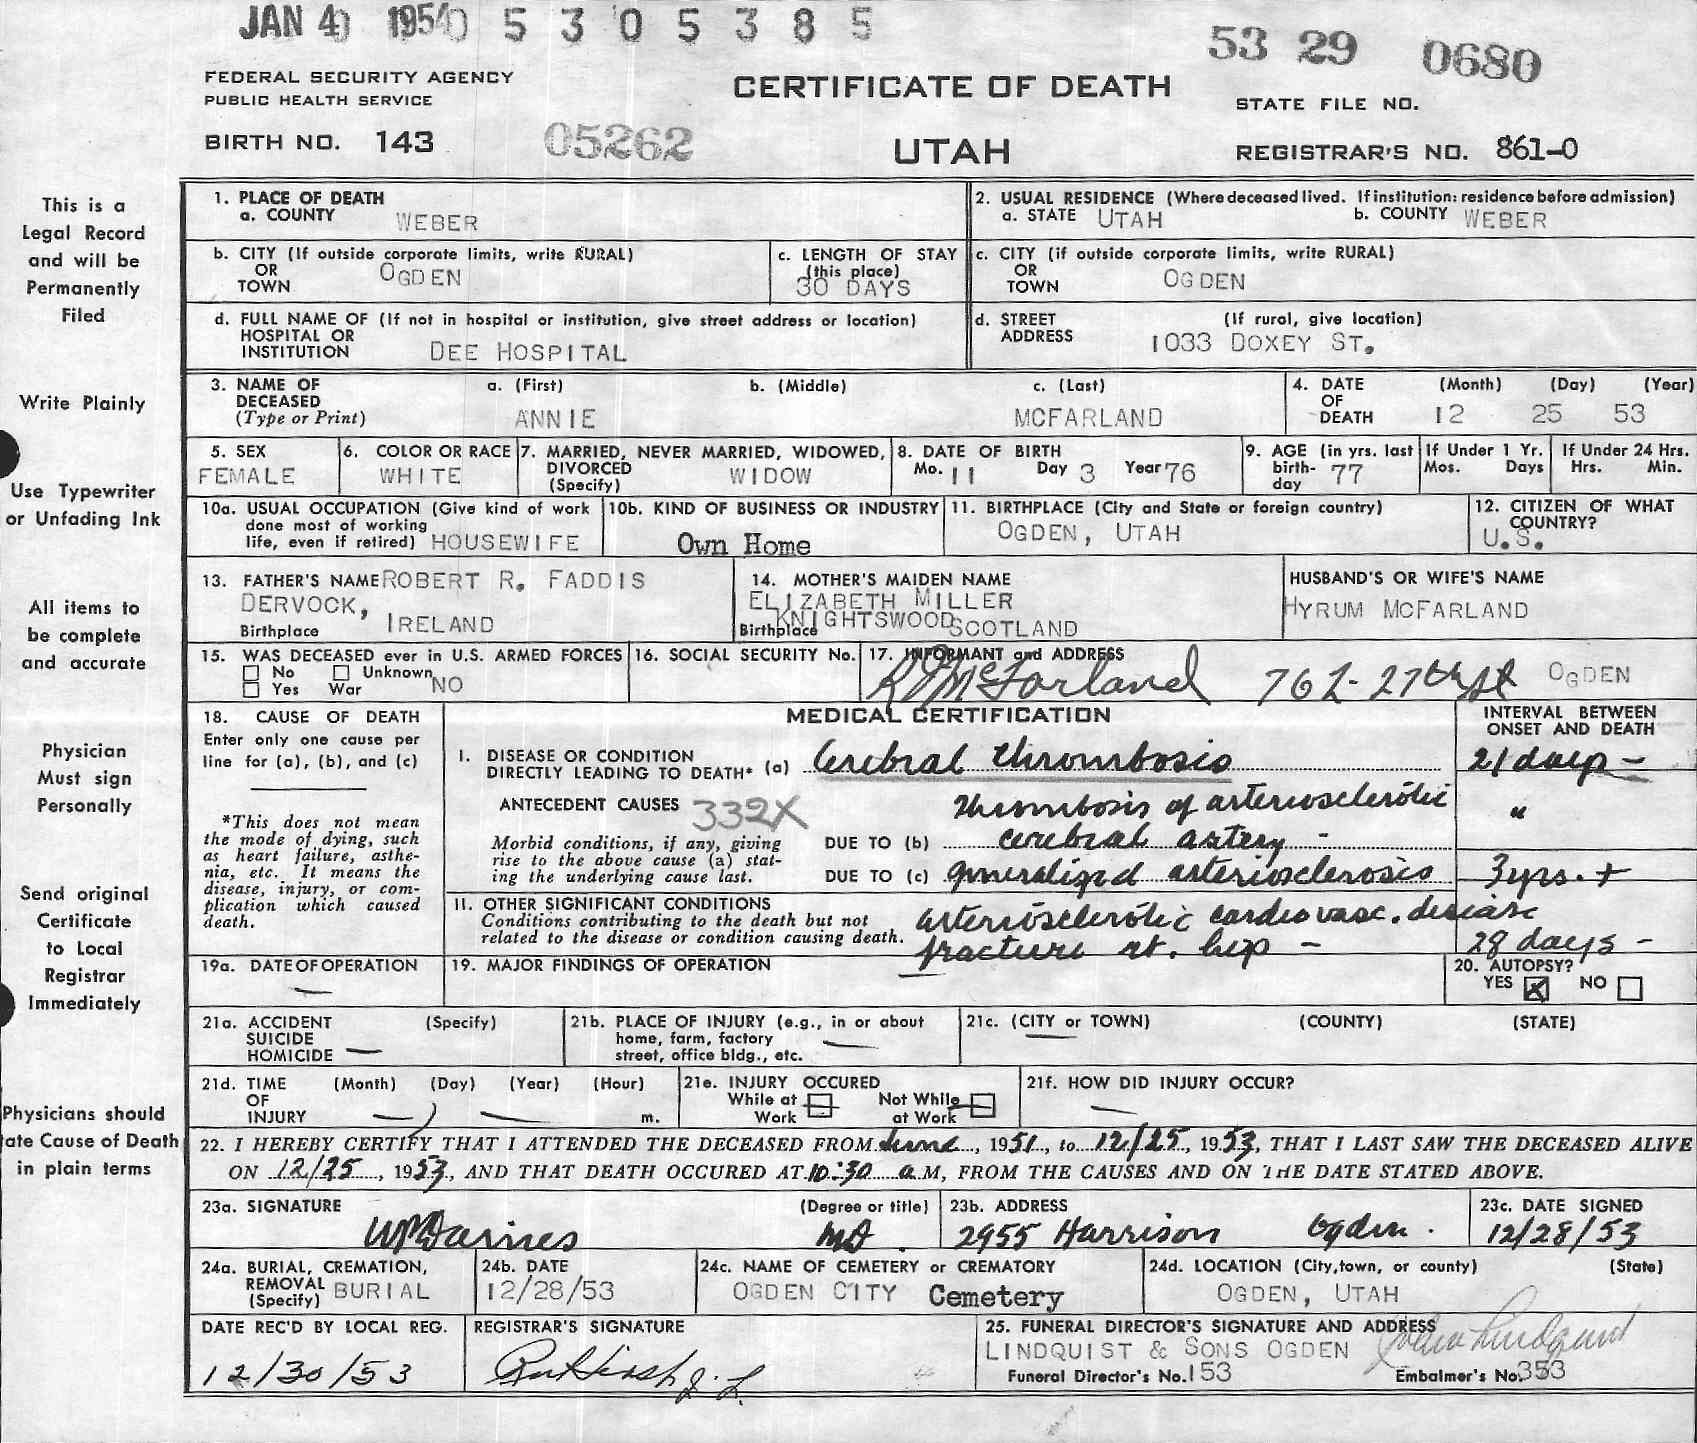 JAN 4 1954 5 3 0 5 3 8 5
53 29 0680
FEDERAL SECURITY AGENCY
PUBLIC HEALTH SERVICE
CERTIFICATE OF DEATH
STATE FILE NO.
BIRTH NO. 143 05262
UTAH
REGISTRAR'S NO. 861-0
This is a
Legal Record
and will be
Permanently
Filed
Write Plainly
Use Typewriter
or Unfading Ink
All items to
be complete
and accurate
Physician
Must sign
Personally
Send original
Certificate
to Local
Registrar
Immediately
Physicians should
ate Cause of Death
in plain terms
1. PLACE OF DEATH
a. COUNTY WEBER
2. USUAL RESIDENCE (Where deceased lived. If institution: residence before admission)
a. STATE UTAH b. COUNTY WEBER
b. CITY (If outside corporate limits, write RURAL)
OR
TOWN OGDEN
c. LENGTH OF STAY
(this place)
30 DAYS
c. CITY (if outside corporate limits, write RURAL)
OR
TOWN OGDEN
d. FULL NAME OF (If not in hospital or institution, give street address or location)
HOSPITAL OR
INSTITUTION DEE HOSPITAL
d. STREET (If rural, give location)
ADDRESS 1033 DOXEY ST.
3. NAME OF DECEASED
(Type or Print)
a. (First) b. (Middle) c. (Last)
ANNIE MCFARLAND
4. DATE OF DEATH (Month) (Day) (Year)
12 25 53
5. SEX
FEMALE
6. COLOR OR RACE
WHITE
7. MARRIED, NEVER MARRIED, WIDOWED,
DIVORCED
(Specify) WIDOW
8. DATE OF BIRTH
Mo. 11 Day 3 Year 76
9. AGE (in yrs. last
birth-
day 77
If Under 1 Yr.
Mos. Days
If Under 24 Hrs.
Hrs. Min.
10a. USUAL OCCUPATION (Give kind of work
done most of working
life, even if retired) HOUSEWIFE
10b. KIND OF BUSINESS OR INDUSTRY
Own Home
11. BIRTHPLACE (City and State or foreign country)
OGDEN, UTAH
12. CITIZEN OF WHAT
COUNTRY?
U.S.
13. FATHER'S NAME ROBERT R. FADDIS
DERVOCK,
Birthplace IRELAND
14. MOTHER'S MAIDEN NAME
ELIZABETH MILLER
Birthplace KNIGHTSWOOD SCOTLAND
HUSBAND'S OR WIFE'S NAME
HYRUM MCFARLAND
15. WAS DECEASED ever in U.S. ARMED FORCES
No Unknown
Yes War NO
16. SOCIAL SECURITY No.
17. INFORMANT and ADDRESS
McFarland 762-27th St OGDEN
18. CAUSE OF DEATH
Enter only one cause per
line for (a), (b), and (c)
*This does not mean
the mode of dying, such
as heart failure, asthe-
nia, etc. It means the
disease, injury, or com-
plication which caused
death.
MEDICAL CERTIFICATION
INTERVAL BETWEEN
ONSET AND DEATH
I. DISEASE OR CONDITION
DIRECTLY LEADING TO DEATH* (a) Cerebral thrombosis 21 days -
ANTECEDENT CAUSES 332X
Morbid conditions, if any, giving
rise to the above cause (a) stat-
ing the underlying cause last.
Thrombosis of arteriosclerotic "
DUE TO (b) cerebral artery -
DUE TO (c) generalized arteriosclerosis 3 yrs. +
11. OTHER SIGNIFICANT CONDITIONS
Conditions contributing to the death but not
related to the disease or condition causing death.
arteriosclerotic cardiovasc. disease
fracture rt. hip - 28 days -
19a. DATE OF OPERATION
—
19. MAJOR FINDINGS OF OPERATION
—
20. AUTOPSY?
YES X NO
21a. ACCIDENT (Specify)
SUICIDE
HOMICIDE —
21b. PLACE OF INJURY (e.g., in or about
home, farm, factory
street, office bldg., etc. —
21c. (CITY or TOWN) (COUNTY) (STATE)
—
21d. TIME (Month) (Day) (Year) (Hour)
OF
INJURY — — m.
21e. INJURY OCCURED
While at Work
Not While at Work
21f. HOW DID INJURY OCCUR?
—
22. I HEREBY CERTIFY THAT I ATTENDED THE DECEASED FROM June, 1951, to 12/25, 1953, THAT I LAST SAW THE DECEASED ALIVE
ON 12/25, 1953, AND THAT DEATH OCCURED AT 10:30 a M, FROM THE CAUSES AND ON THE DATE STATED ABOVE.
23a. SIGNATURE (Degree or title)
MD.
23b. ADDRESS
2955 Harrison Ogden.
23c. DATE SIGNED
12/28/53
24a. BURIAL, CREMATION,
REMOVAL
(Specify) BURIAL
24b. DATE
12/28/53
24c. NAME OF CEMETERY or CREMATORY
OGDEN CITY Cemetery
24d. LOCATION (City, town, or county) (State)
OGDEN, UTAH
DATE REC'D BY LOCAL REG.
12/30/53
REGISTRAR'S SIGNATURE
25. FUNERAL DIRECTOR'S SIGNATURE AND ADDRESS
LINDQUIST & SONS OGDEN
Funeral Director's No. 153 Embalmer's No. 353